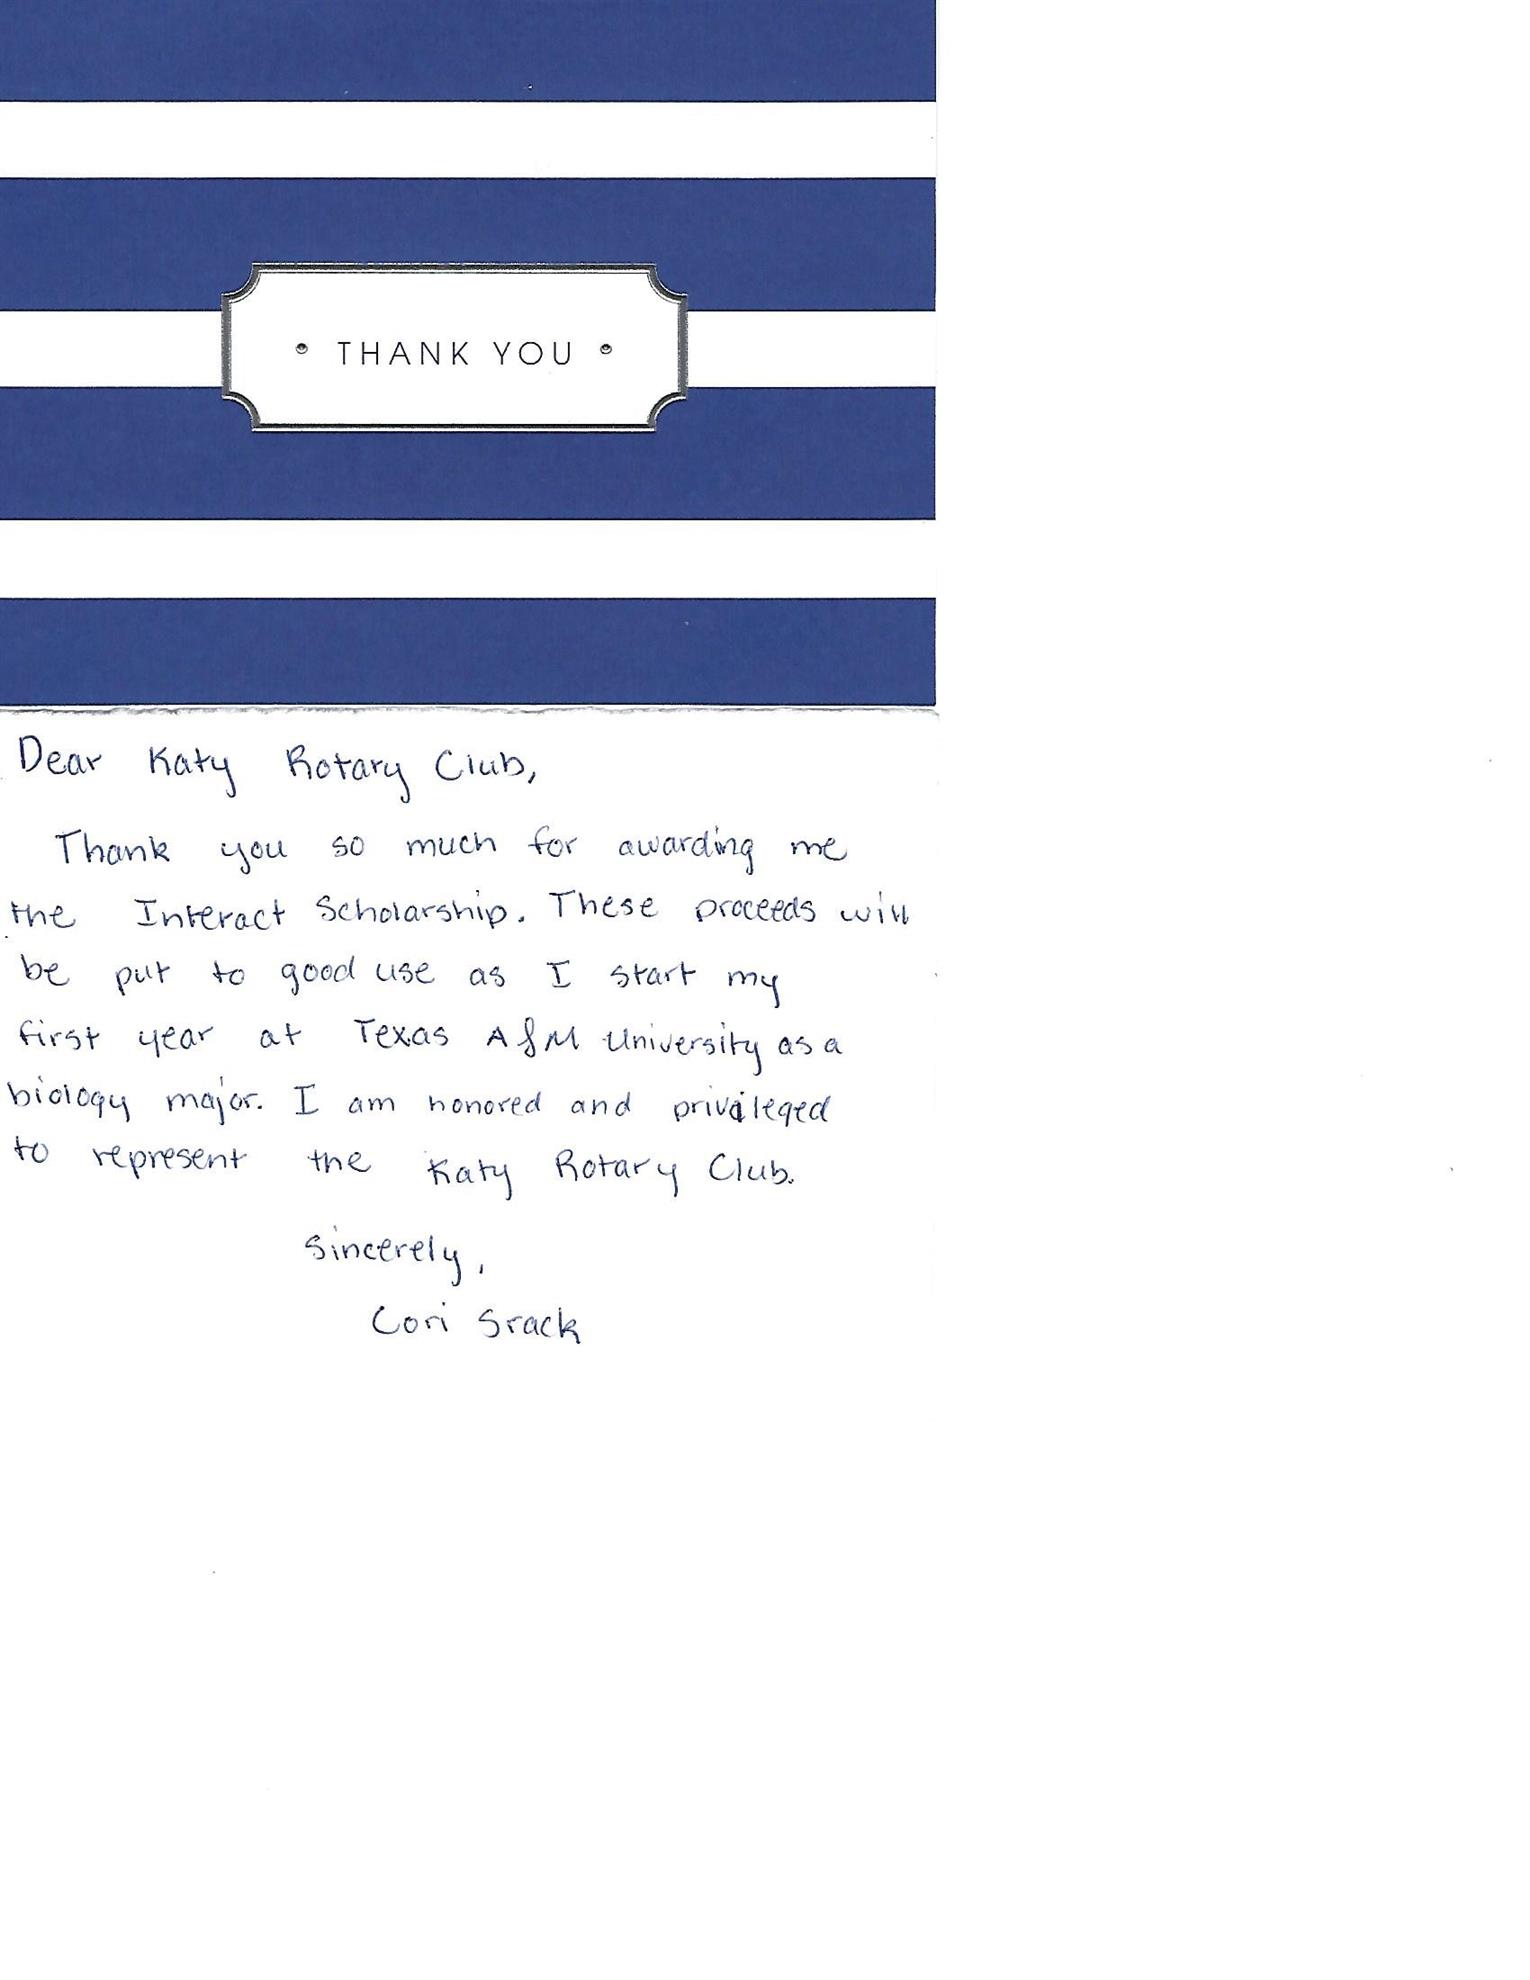 • THANK YOU •
Dear Katy Rotary Club,
Thank you so much for awarding me
the Interact Scholarship. These proceeds will
be put to good use as I start my
first year at Texas A&M University as a
biology major. I am honored and privileged
to represent the Katy Rotary Club.
Sincerely,
Cori Srack